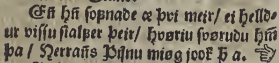 Eñ hñ sopnade æ þvi meir/ ei helld-
ur vissu sialfer þeir/ hvoriu svorudu hm̃
þa / Herrans Pijnu miog jook þ a. ☞